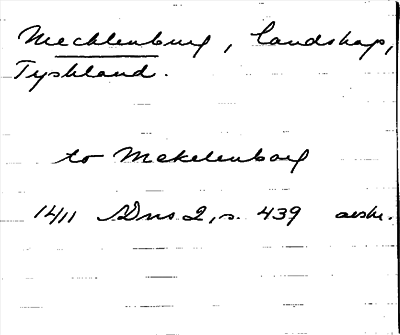 Mecklenburg, landskap,
Tyskland.
to Mekelenborg
1411 SDns 2, s. 439 avskr.